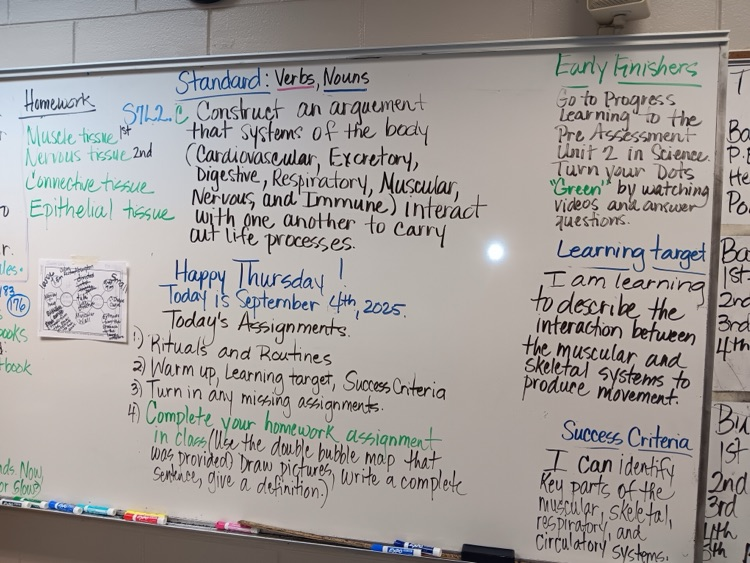 Homework
Muscle tissue 1st
Nervous tissue 2nd
Connective tissue
Epithelial tissue
Standard: Verbs, Nouns
S7L2.c Construct an arguement
that systems of the body
(Cardiovascular, Excretory,
Digestive, Respiratory, Muscular,
Nervous, and Immune) interact
with one another to carry
out life processes.
Happy Thursday!
Today is September 4th, 2025.
Today's Assignments.
1) Rituals and Routines
2) Warm up, Learning target, Success Criteria
3) Turn in any missing assignments.
4) Complete your homework assignment
in class (Use the double bubble map that
was provided) Draw pictures, write a complete
sentence, give a definition.)
Early Finishers
Go to Progress
Learning to the
Pre Assessment
Unit 2 in Science.
Turn your Dots
"Green" by watching
videos and answer
questions.
Learning target
I am learning
to describe the
interaction between
the muscular and
skeletal systems to
produce movement.
Success Criteria
I can identify
key parts of the
muscular, skeletal,
respiratory, and
circulatory systems.
183
176
1st
2nd
3rd
4th
1st
2nd
3rd
4th
5th